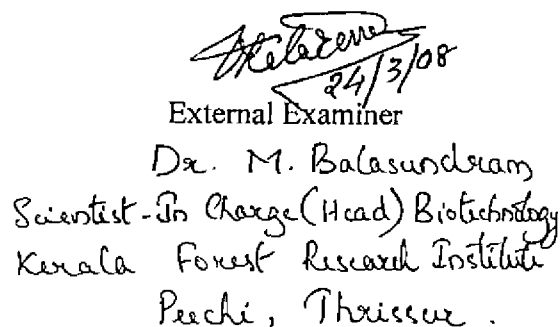 24/3/08
External Examiner
Dr. M. Balasundram
Scientist-In Charge (Head) Biotechnology
Kerala Forest Research Institute
Peechi, Thrissur.